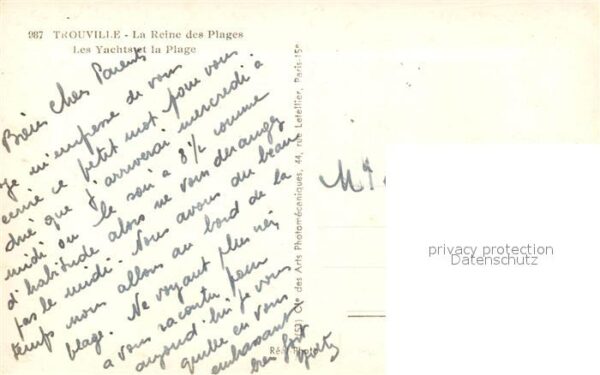 987 TROUVILLE - La Reine des Plages
Les Yachts et la Plage
Bien Chers Parents
Je m'empresse de vous
écrire ce petit mot pour vous
dire que j'arriverai mercredi à
midi ou le soir à 8½ comme
d'habitude alors ne vous dérangez
pas le midi. Nous avons du beau
temps nous allons au bord de la
plage. Ne voyant plus rien
à vous raconter pour
aujourd'hui je vous
quitte en vous
embrassant
bien fort
Cie des Arts Photomécaniques, 44, rue Letellier, Paris-15e
Mr
privacy protection
Datenschutz